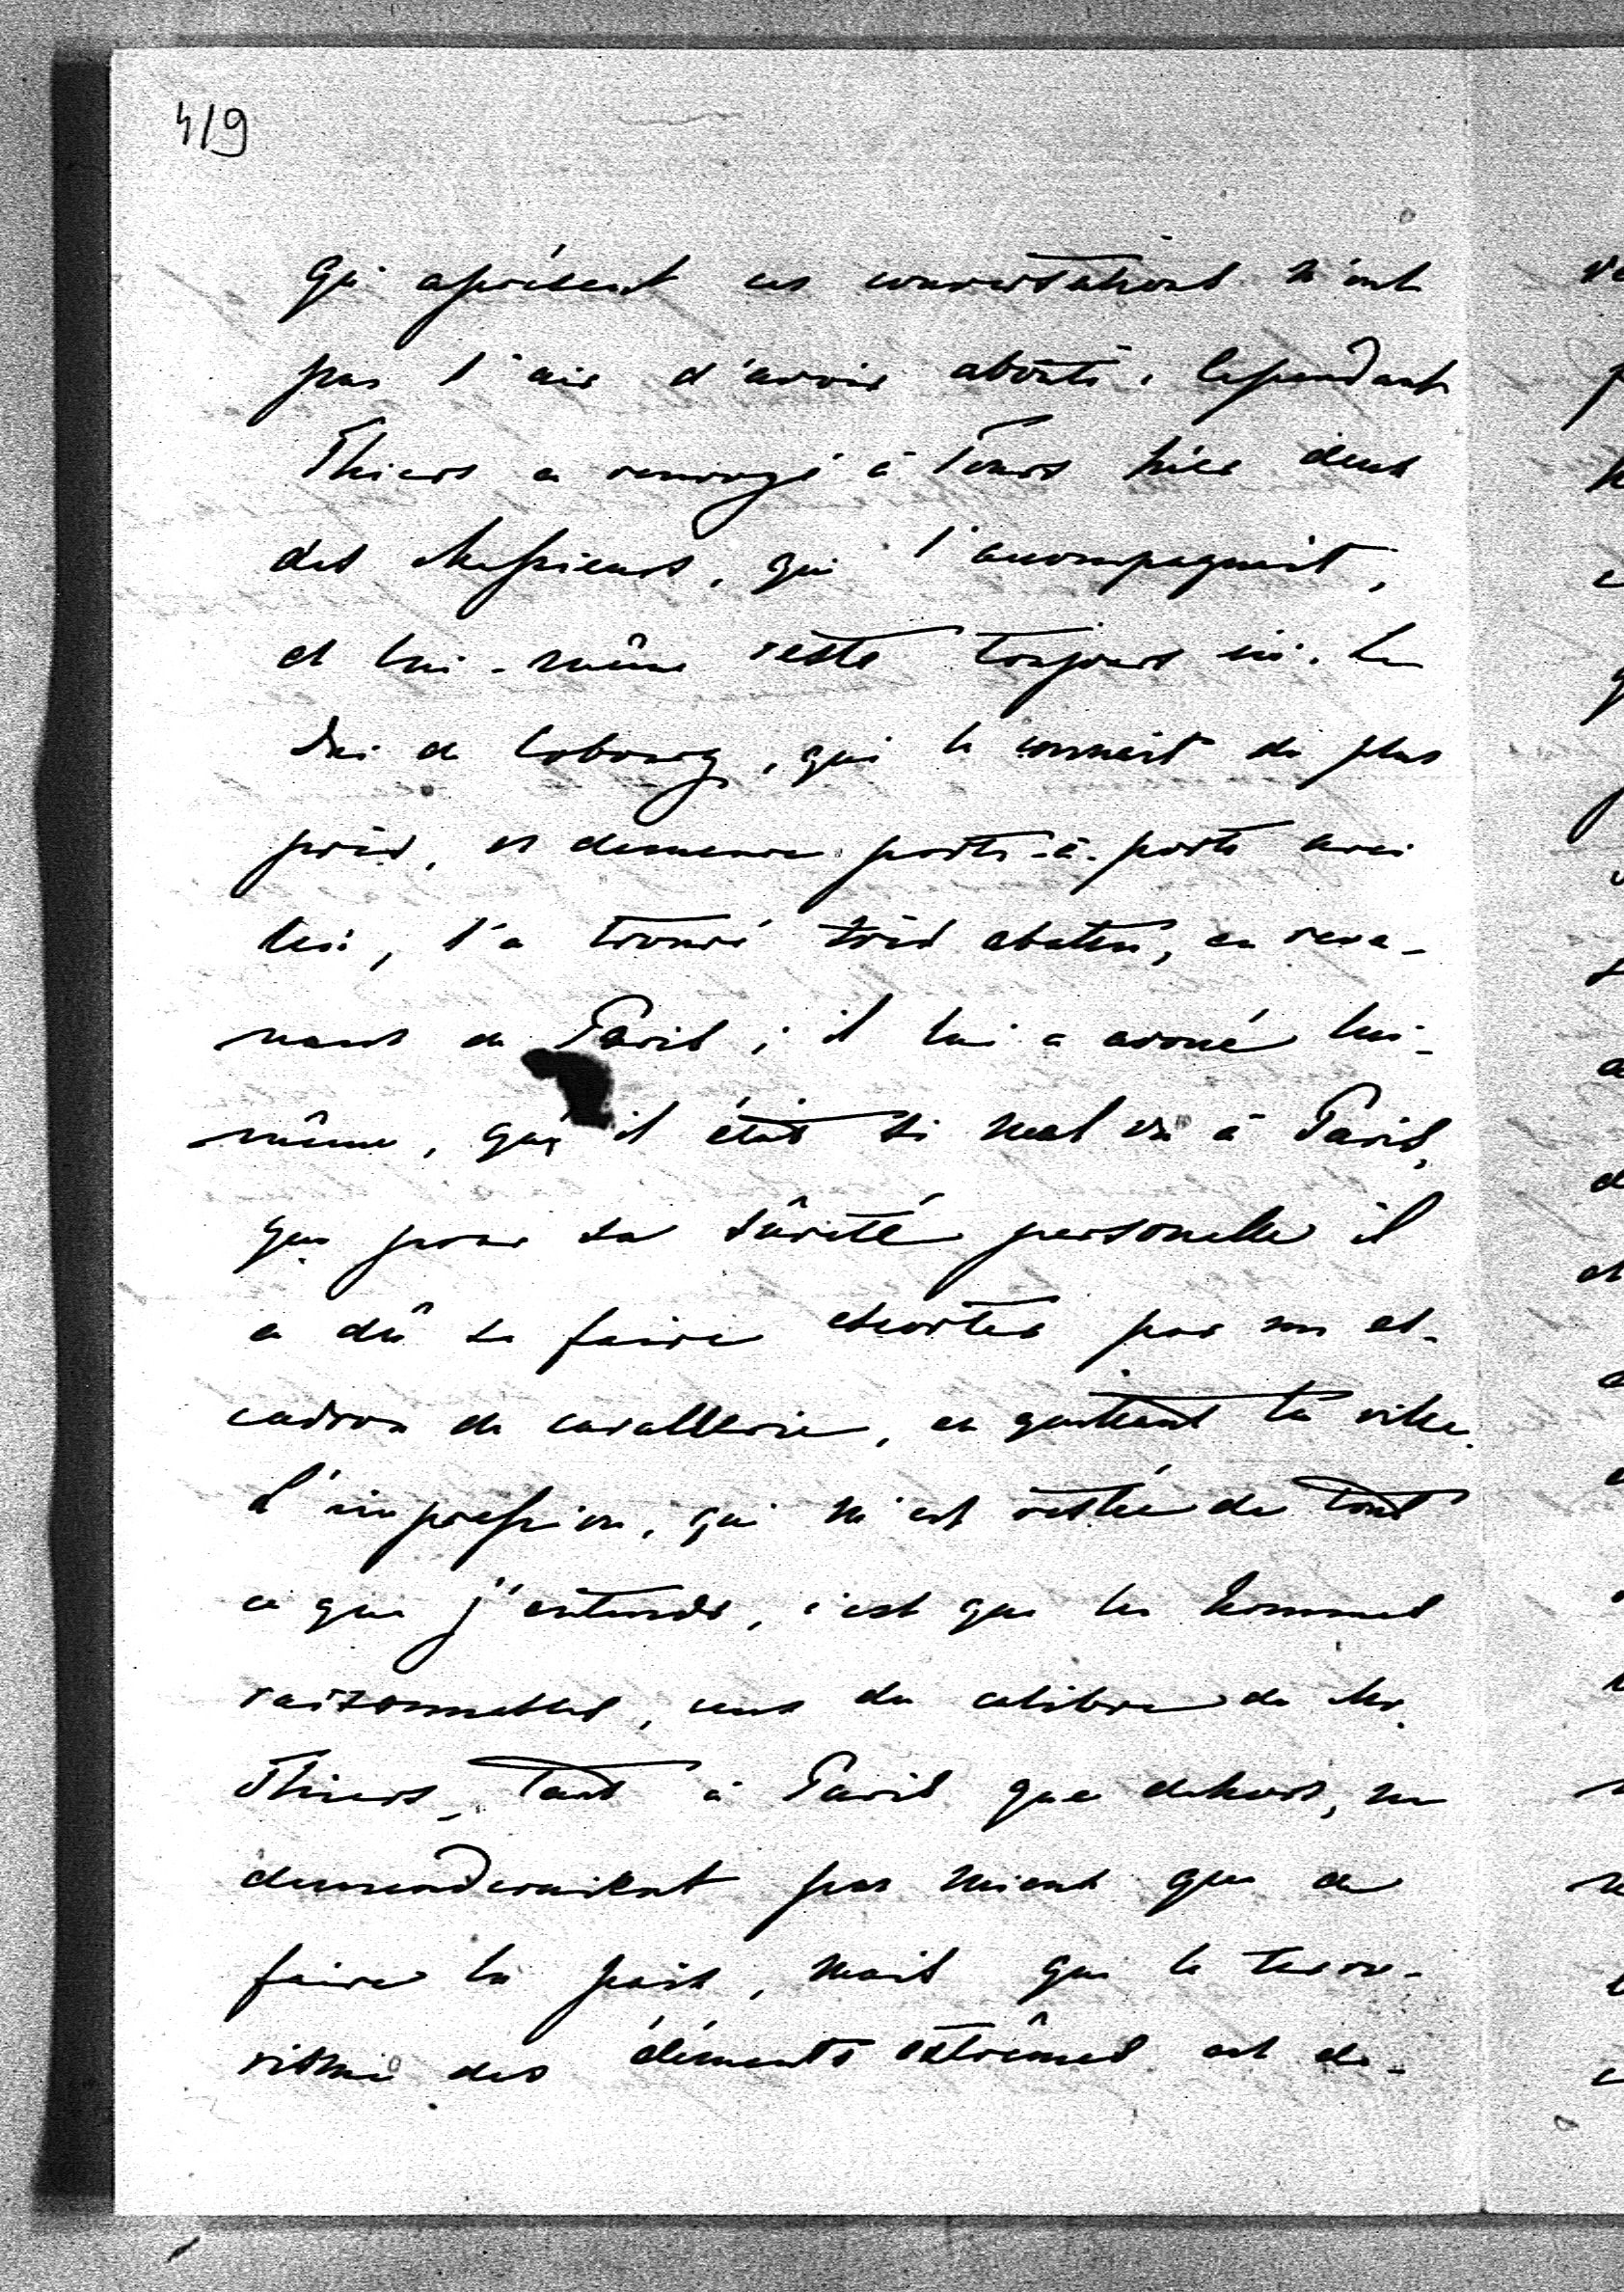 419
Qu'aprésent ces conversations n'ont
pas l'air d'avoir abouti. Cependant
Thiers a renvoyé à Tours hier deux
des Messieurs, qui l'accompagnait,
et lui-même reste toujours ici. Le
Duc de Cobourg, qui le connait de plus
près, et demeure porte-à-porte avec
lui, l'a trouvé très abatu, en reve-
nant de Paris; il lui a avoué lui-
même, qu'il était si mal vu à Paris,
que pour sa sûreté personelle il
a dû se faire escorter par un es-
cadron de cavallerie, en quittant la ville.
L'impression, qui m'est restée de tout
ce que j'entends, c'est que les hommes
raisonnables, ceux du calibre de Mr.
Thiers, tant à Paris que dehors, ne
demanderaient pas mieux que de
faire la paix, mais que le terro-
risme des éléments extrêmes est de-